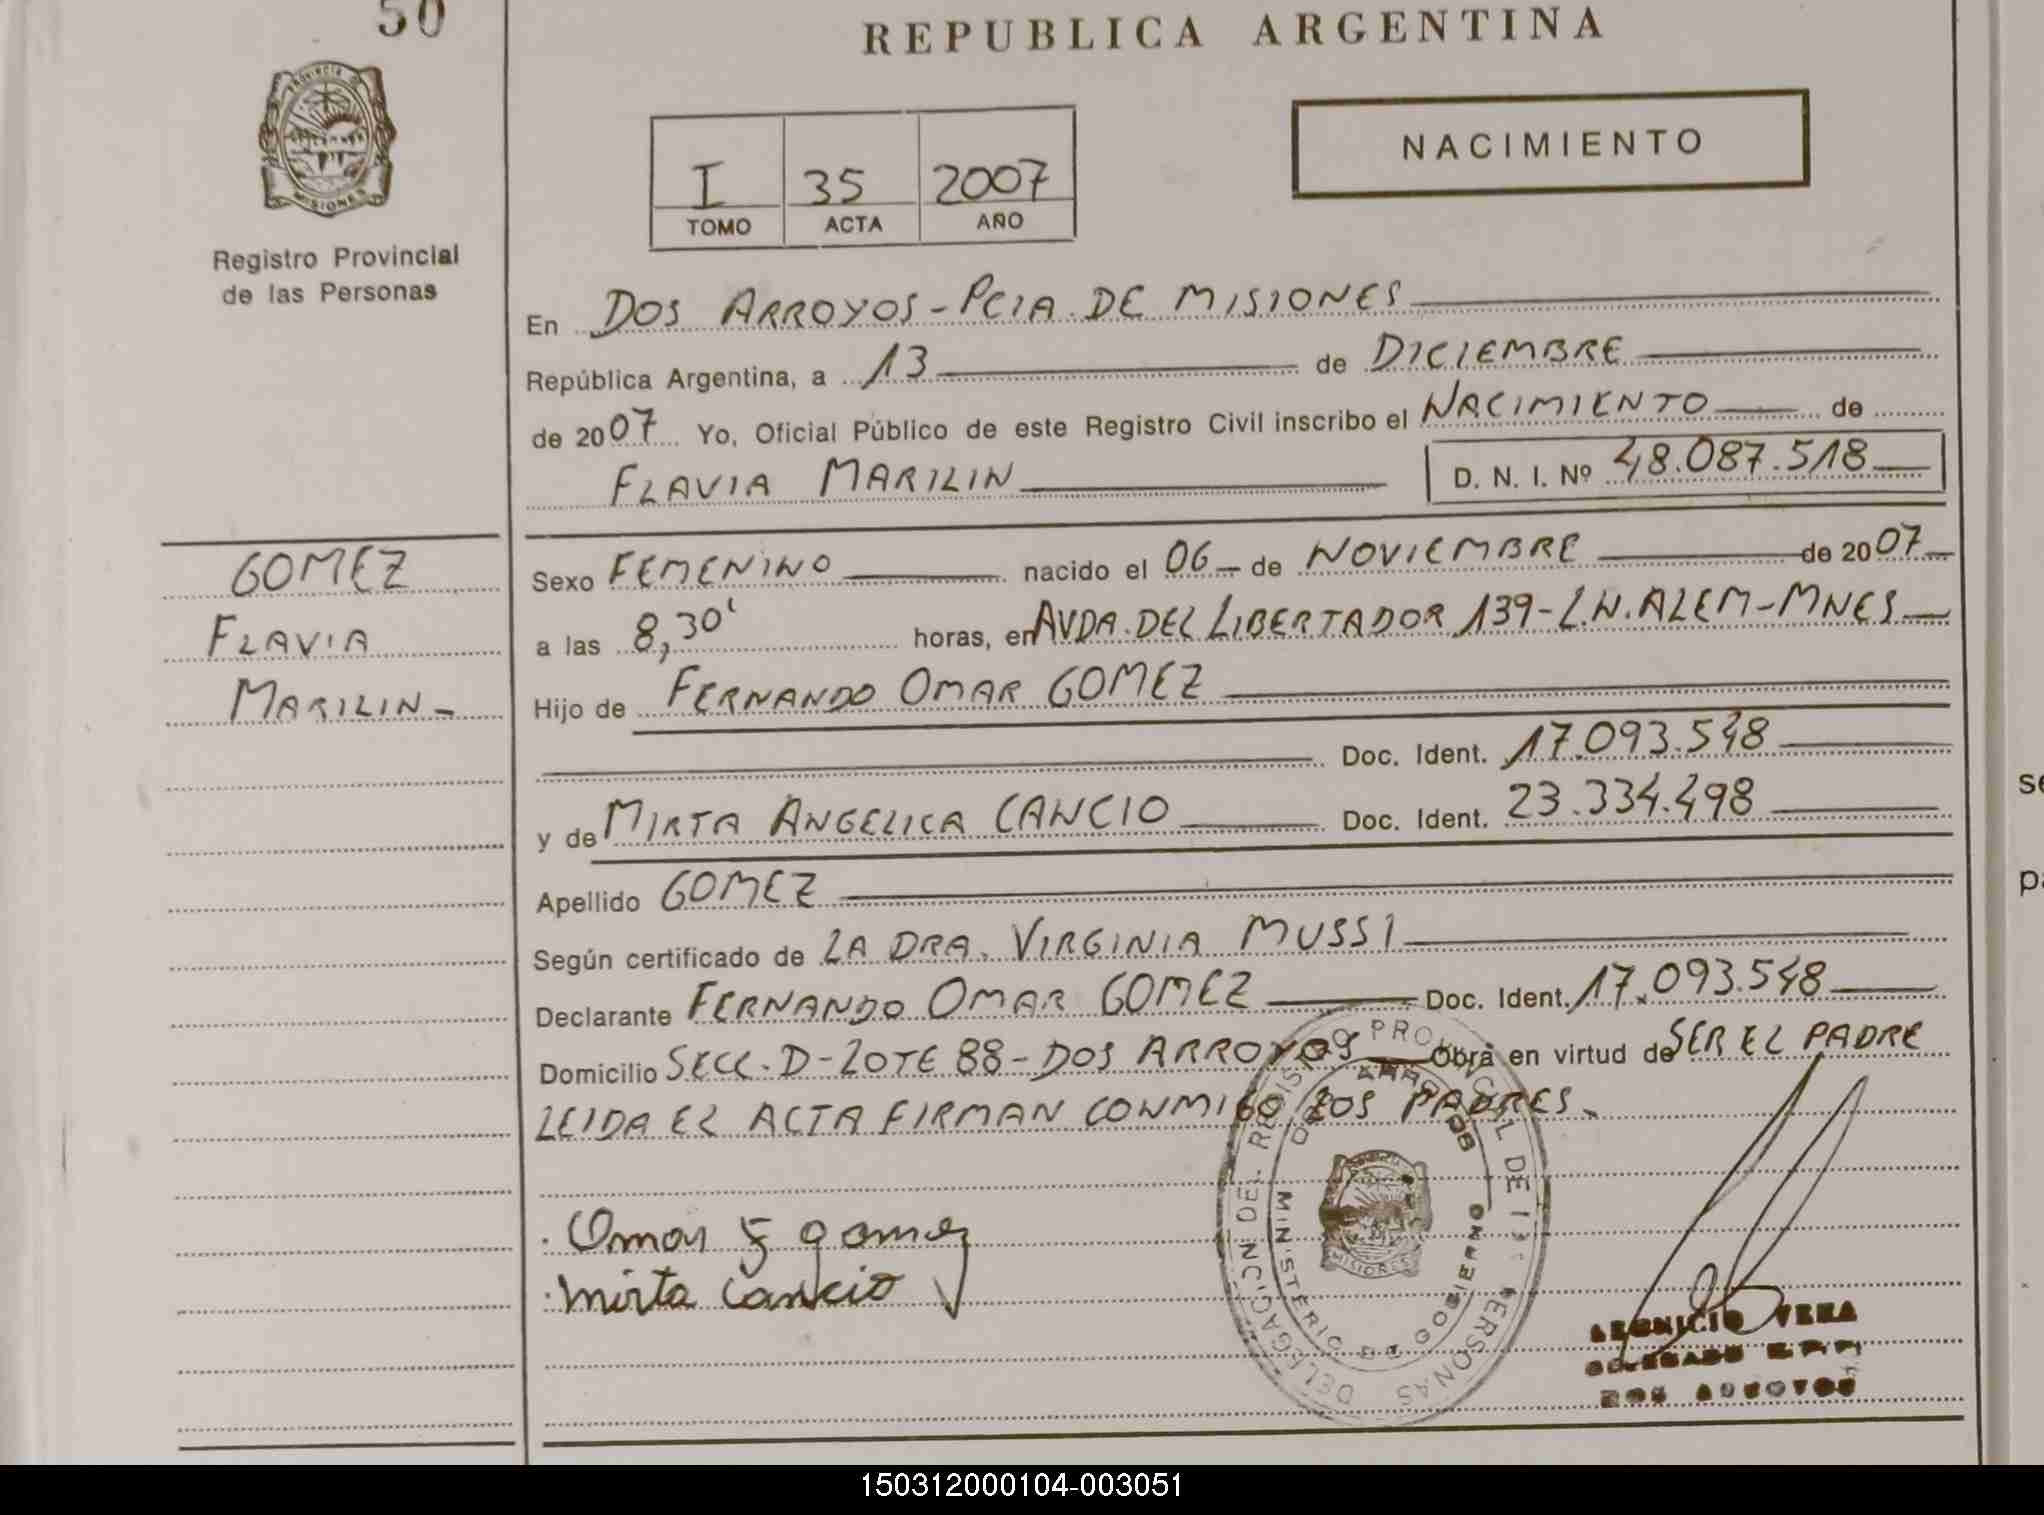 50
REPUBLICA ARGENTINA
PROVINCIA DE
MISIONES
Registro Provincial
de las Personas
I 35 2007
TOMO ACTA AÑO
NACIMIENTO
En DOS ARROYOS - PCIA. DE MISIONES
República Argentina, a 13 de DICIEMBRE
de 2007 Yo, Oficial Público de este Registro Civil inscribo el NACIMIENTO de
FLAVIA MARILIN D. N. I. Nº 48.087.518
GOMEZ
FLAVIA
MARILIN -
Sexo FEMENINO nacido el 06 - de NOVIEMBRE de 2007
a las 8,30' horas, en AVDA. DEL LIBERTADOR 139 - L.N. ALEM - MNES
Hijo de FERNANDO OMAR GOMEZ
Doc. Ident. 17.093.548
y de MIRTA ANGELICA CANCIO Doc. Ident. 23.334.498
Apellido GOMEZ
Según certificado de LA DRA. VIRGINIA MUSSI
Declarante FERNANDO OMAR GOMEZ Doc. Ident. 17.093.548
Domicilio SECC. D - LOTE 88 - DOS ARROYOS Obra en virtud de SER EL PADRE
LEIDA EL ACTA FIRMAN CONMIGO LOS PADRES.
Omar F gomez
mirta Cancio
DELEGACION DEL REGISTRO PROVINCIAL DE LAS PERSONAS
DOS ARROYOS
MINISTERIO DE GOBIERNO
MISIONES
VERA
DELEGADO
DOS ARROYOS
se
pa
150312000104-003051